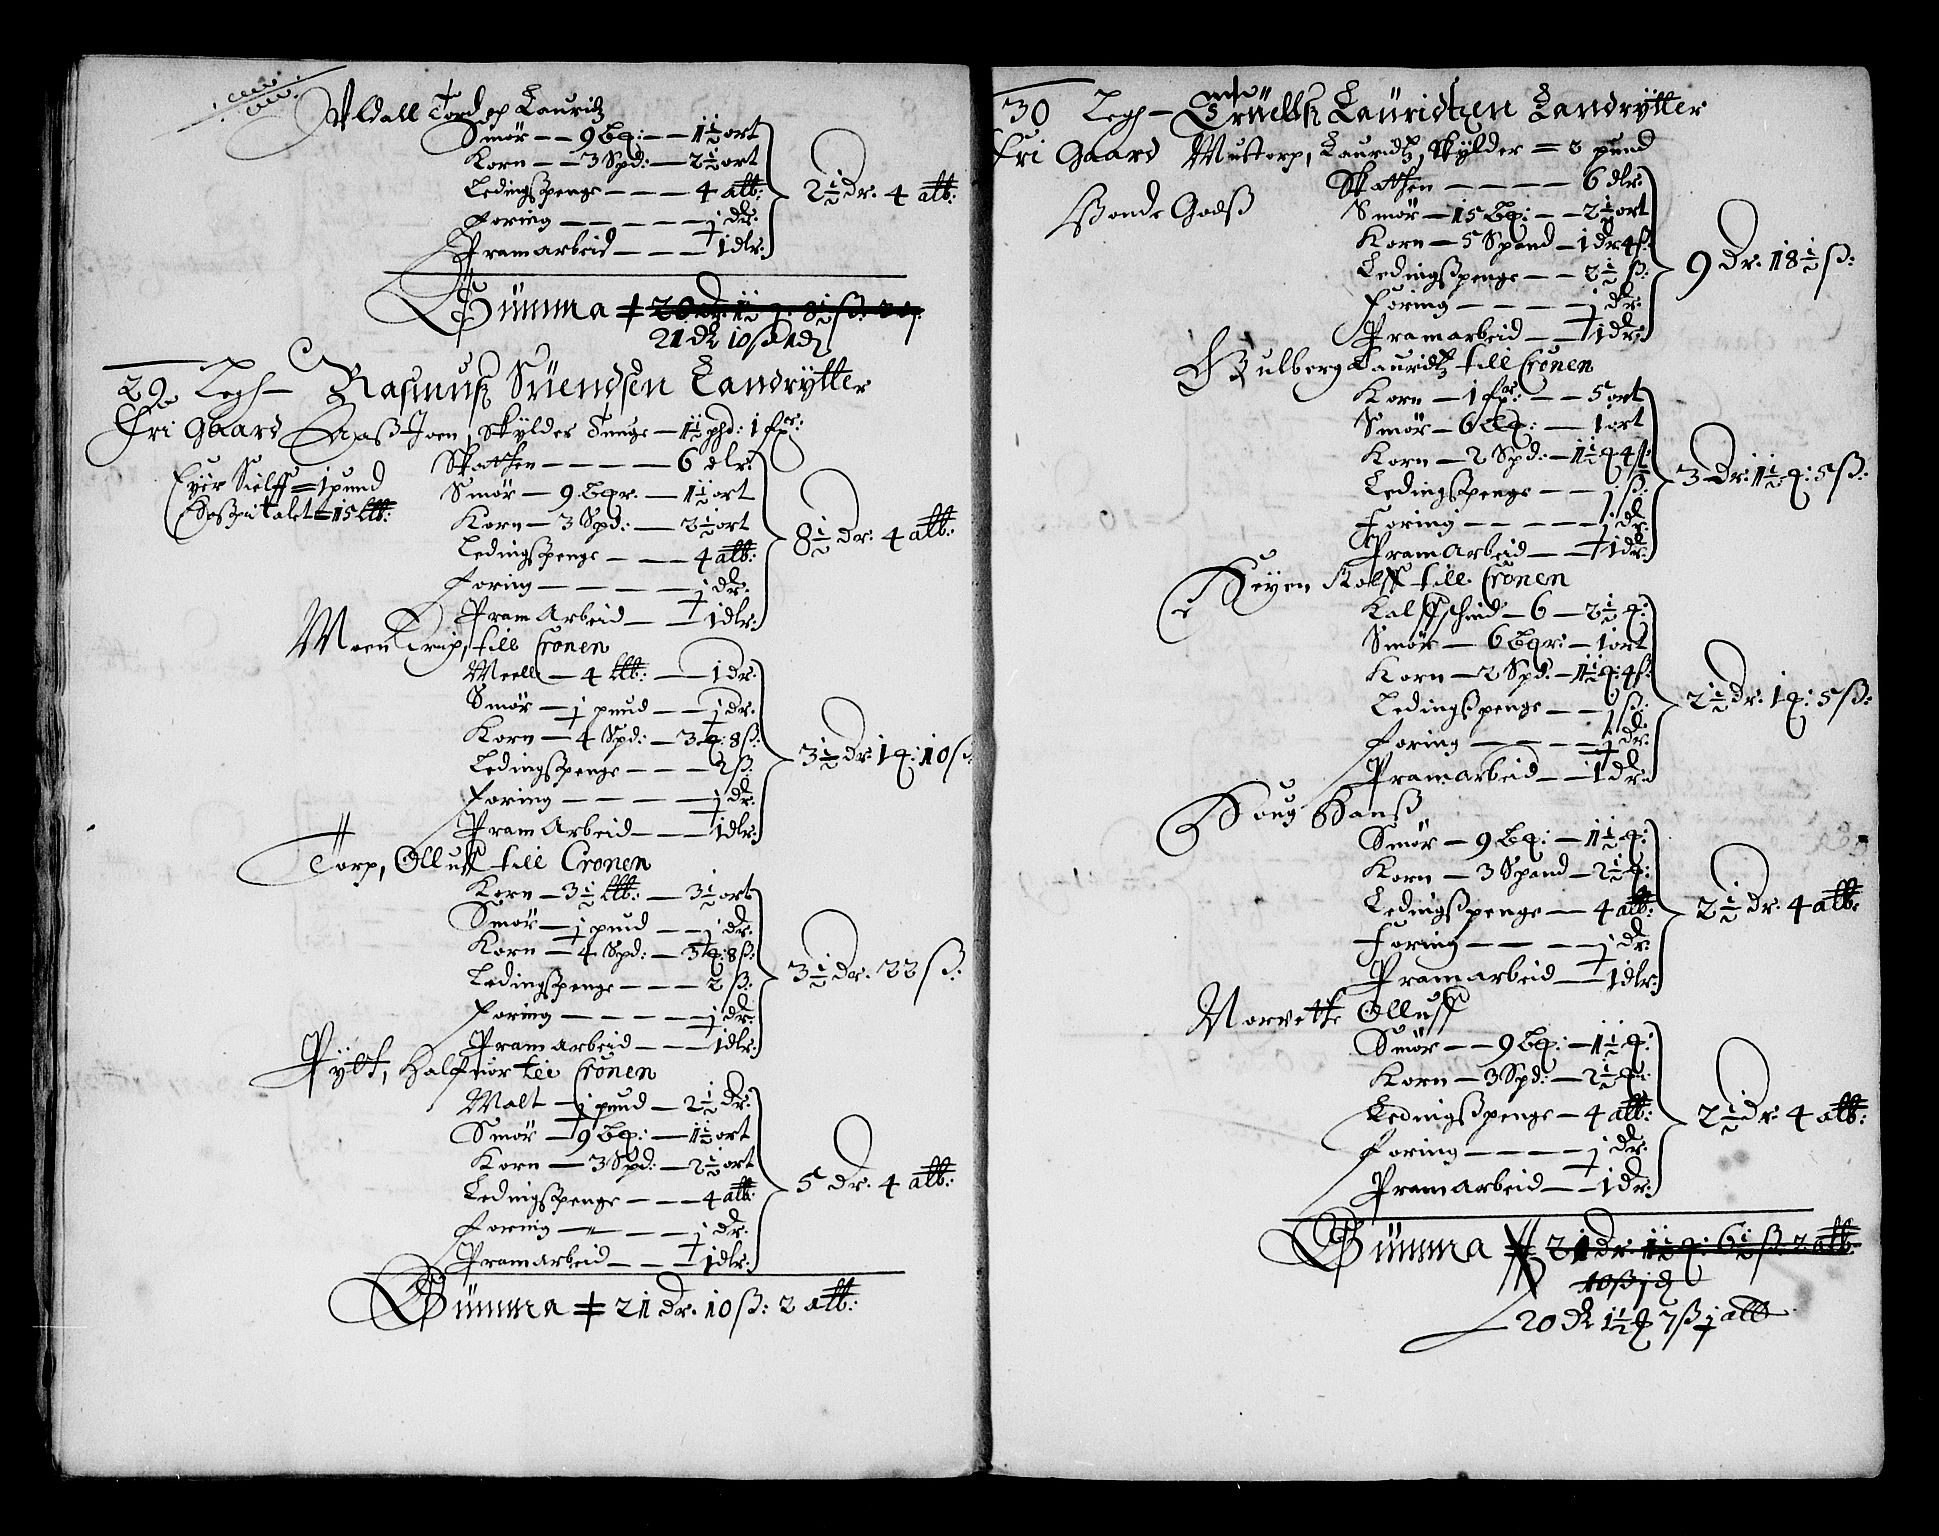 Uldall Tord og Lauridtz
Smør — 9 bg: — 1½ ort
Korn — 3 Spd: — 2½ ort
Ledingsspenge — 4 alb:
Foring — j dr:
Pramarbeid — 1 dlr:
2½ dr: 4 alb:
Summa
21 dr 10 ß
29 Legh — Rasmusz Suendsen Landrytter
Fri Gaard Aasz Joen, Skylder Tunge — 1½ phd: 1 fr:
Eyer Sielff = 1 pund
Hospitalet = 15 ltb:
Skatten — 6 dlr:
Smør — 9 bgr. — 1½ ort
Korn — 3 Spd: — 2½ ort
Ledingsspenge — 4 alb:
Foring — j dr:
Pram Arbeid — 1 dlr:
8½ dr: 4 alb:
Moen till Cronen
Meell — 4 ltb: — 1 dr:
Smør — j pund — j dr:
Korn — 4 Spd: — 3 q: 8 ß:
Ledingsspenge — 2 ß:
Foring — j dr:
Pram Arbeid — 1 dlr:
3½ dr: 1 q: 10 ß
Torp, Olluff till Cronen
Korn — 3½ ltb: — 3½ ort
Smør — j pund — j dr:
Korn — 4 Spd: — 3 q: 8 ß:
Ledingsspenge — 2 ß:
Foring — j dr:
Pramarbeid — 1 dlr:
3½ dr. 22 ß:
Pytt, Halfuor till Cronen
Malt — j pund — 2½ dr:
Smør — 9 bg: — 1½ ort
Korn — 3 Spd: — 2½ ort
Ledingsspenge — 4 alb:
Foring — j dr:
Pramarbeid — 1 dlr:
5 dr. 4 alb:
Summa 21 dr. 10 ß: 2 alb:
30 Legh — Truelsz Lauridtzen Landrytter
Fri Gaard Mustorp, Lauridtz, Skylder = 3 pund
Bonde Godß
Skatten — 6 dlr:
Smør — 15 bg: — 2½ ort
Korn — 5 Spand — 1 dr 4 ß:
Ledingsspenge — 2½ ß:
Foring — j dr:
Pramarbeid — 1 dr:
9 dr. 18½ ß:
Gulberg Lauridtz till Cronen
Korn — 1 fr: — 5 ort
Smør — 6 bg: — 1 ort
Korn — 2 Spd: — 1½ q 4 ß:
Ledingsspenge — j ß:
Foring — j dr:
Pramarbeid — 1 dr:
3 dr: 1½ q: 5 ß:
Rolff till Cronen
Kalffschind — 6 — 2½ q:
Smør — 6 bgr: — 1 ort
Korn — 2 Spd: — 1½ q: 4 ß:
Ledingsspenge — j ß:
Foring — j dr:
Pramarbeid — 1 dr:
2½ dr: 1 q: 5 ß:
Houg Hansß
Smør — 9 bg: — 1½ q:
Korn — 3 Spand — 2½ q:
Ledingsspenge — 4 alb:
Foring — j dr:
Pramarbeid — 1 dlr:
2½ dr. 4 alb:
Olluff
Smør — 9 bg: — 1½ q:
Korn — 3 Spd: — 2½ q:
Ledingsspenge — 4 alb:
Foring — j dr:
Pramarbeid — 1 dr:
2½ dr: 4 alb:
Summa 21 dr: 1½ q: 6½ ß: 2 alb:
10 ß j d
20 dr 1½ q 7 ß j alb